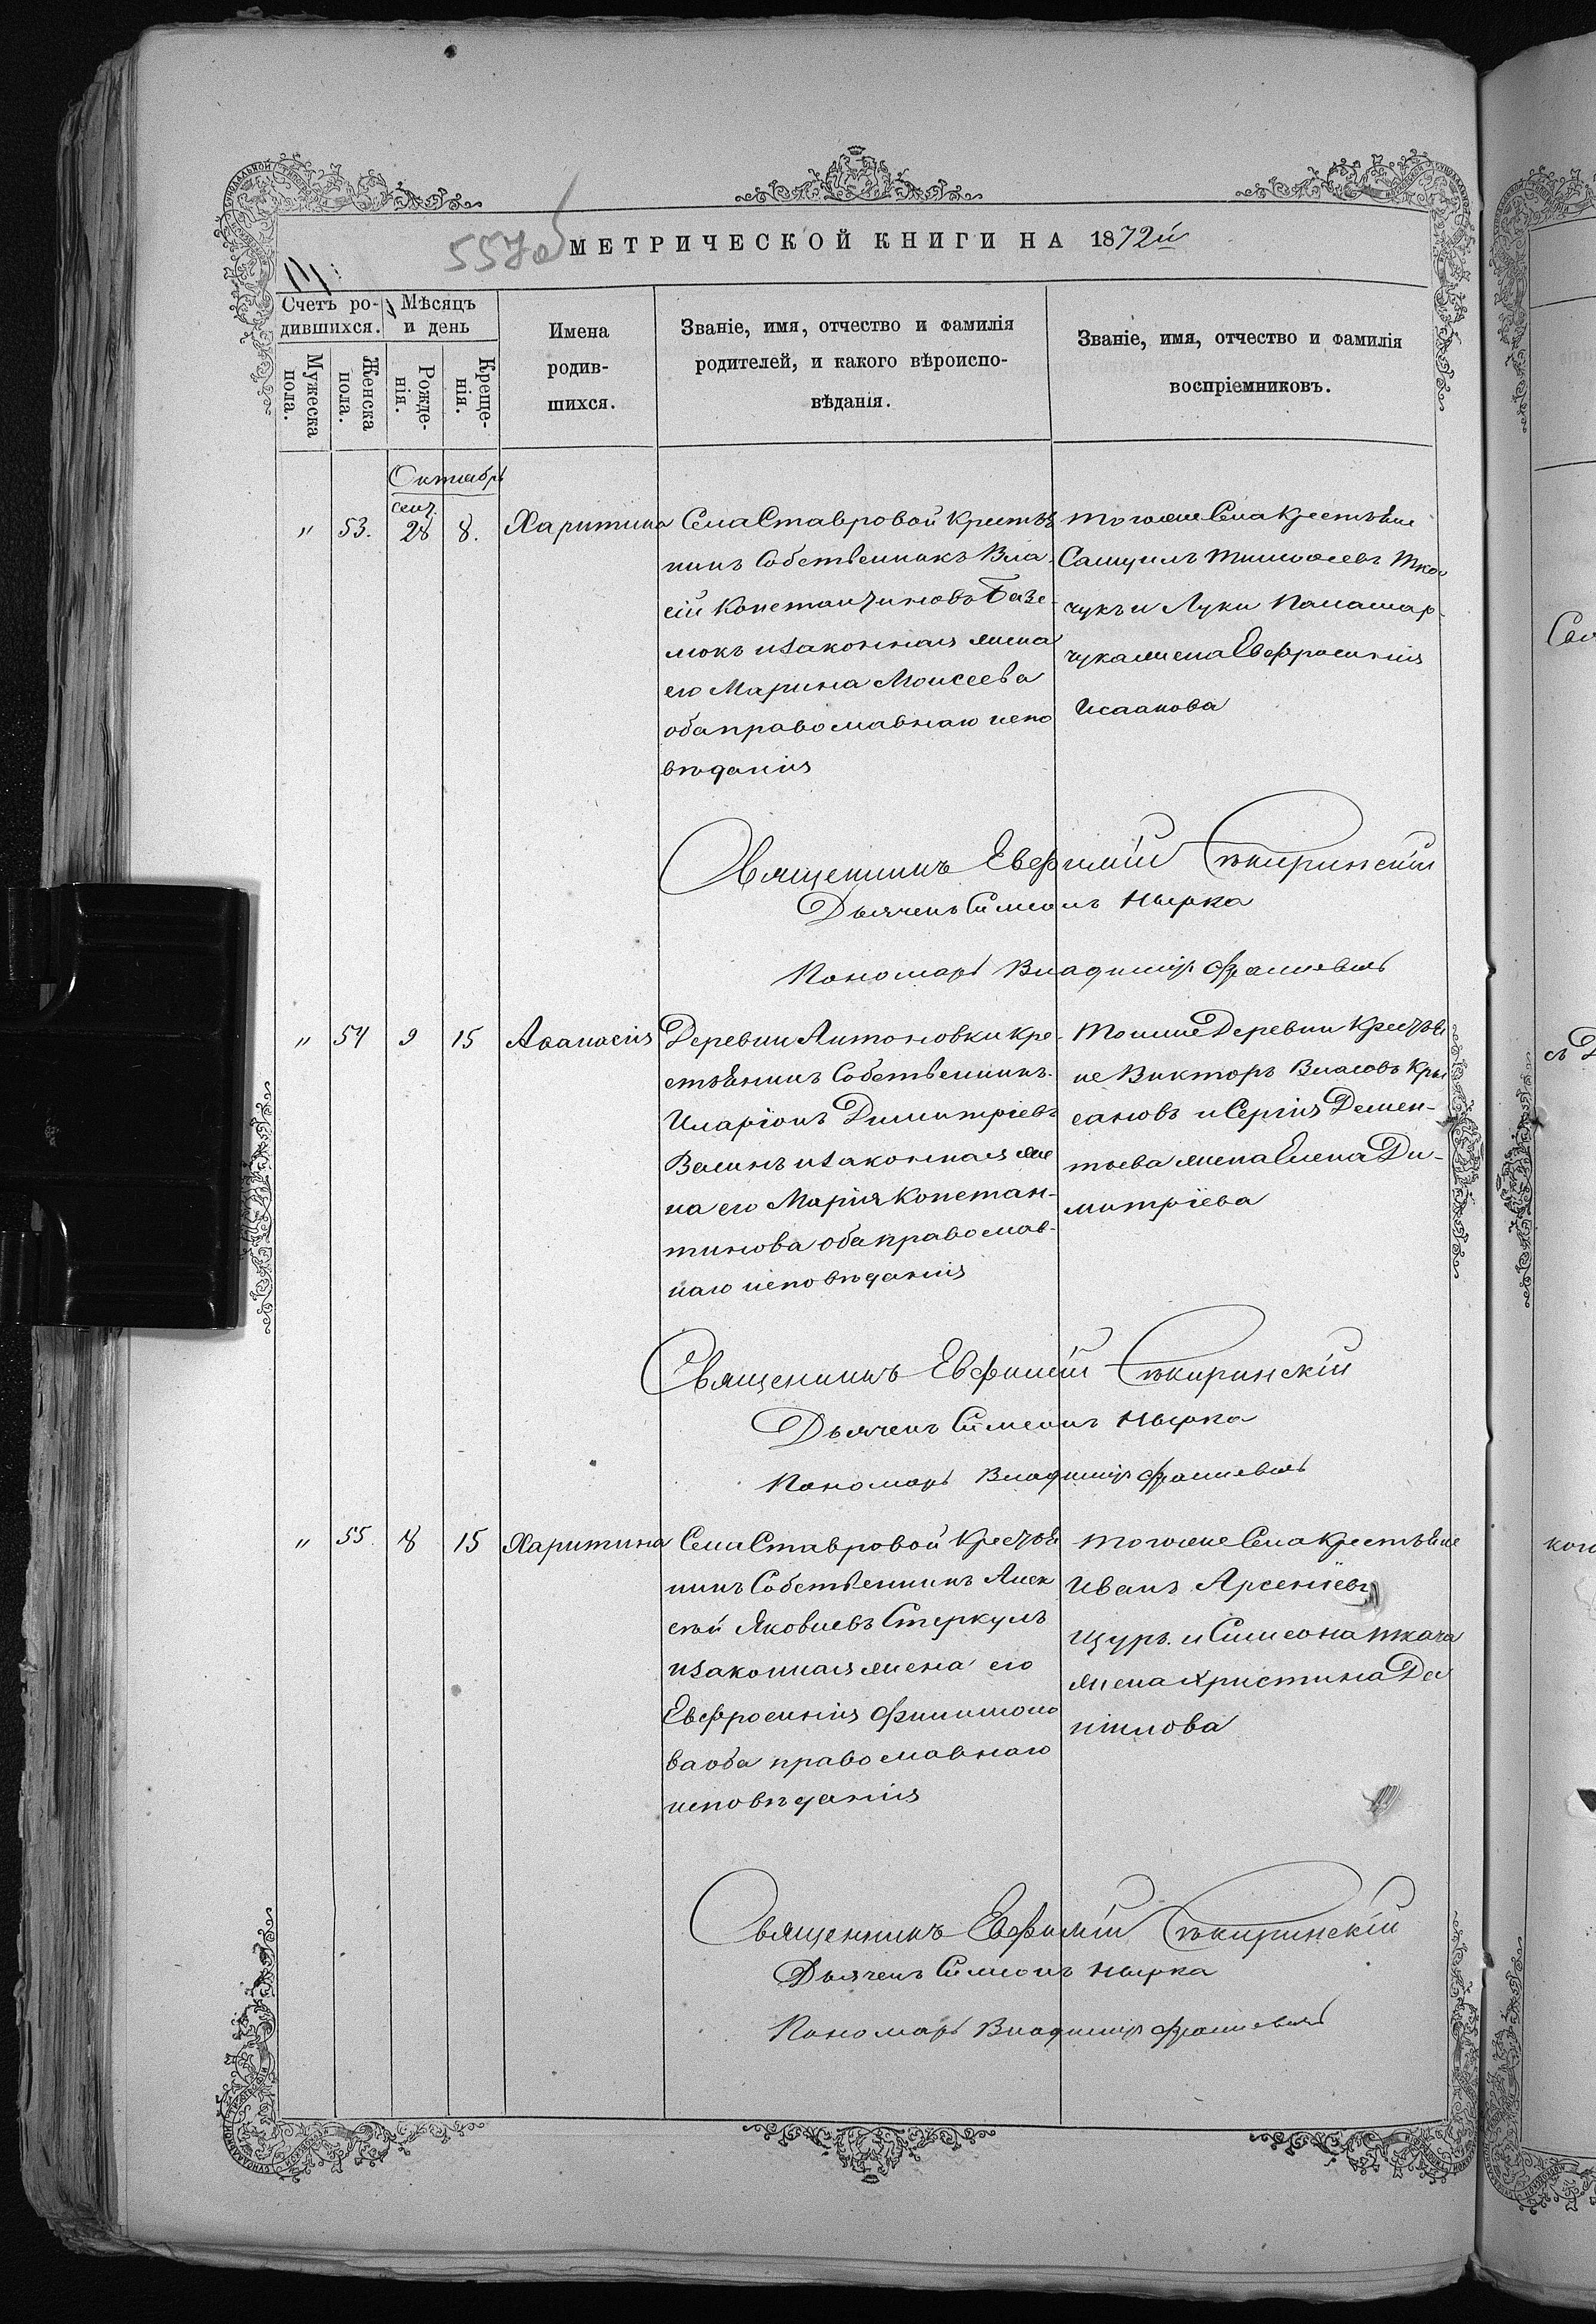 557об
МЕТРИЧЕСКОЙ КНИГИ НА 1872й
Счетъ ро-
дившихся.
Мѣсяцъ
и день
Мужеска
пола.
Женска
пола.
Рожде-
нія.
Креще-
нія.
Имена
родив-
шихся.
Званіе, имя, отчество и фамилія
родителей, и какого вѣроиспо-
вѣданія.
Званіе, имя, отчество и фамилія
воспріемниковъ.
Октябрь
сент.
" 53. 28 8. Харитина
Села Ставровой крестья
нинъ Собственникъ Вла-
сій Константиновъ Базе-
люкъ и законная жена
его Марина Моисеева
оба православнаго испо
вѣданія
того же Села крестьяне
Самуилъ Тимофеевъ Тка
чукъ и Луки Паламар-
чука жена Евфросинія
Исаакова
Священникъ Евфимій Сѣкиринскій
Дьячекъ Симеонъ Нырка
Пономарь Владимиръ
" 54 9 15 Аѳанасія
Деревни Антоновки кре-
стьянинъ Собственникъ
Иларіонъ Димитріевъ
и законная же
на его Марія Констан-
тинова оба православ-
наго исповѣданія
Тойже Деревни крестья
не Викторъ Власовъ
сановъ и Сергія Демен-
тьева жена Елена Ди-
митріева
Священникъ Евфимій Сѣкиринскій
Дьячекъ Симеонъ Нырка
Пономарь Владимиръ
" 55. 8 15 Харитина
Села Ставровой крестья
нинъ Собственникъ Алек
сѣй Яковлевъ Стеркулъ
и законная жена его
Евфросинія Филимоно
ва оба православнаго
исповѣданія
того же Села крестьяне
Иванъ Арсеніевъ
Щуръ и Симеона ткача
жена Христина Да
ніилова
Священникъ Евфимій Сѣкиринскій
Дьячекъ Симеонъ Нырка
Пономарь Владимиръ